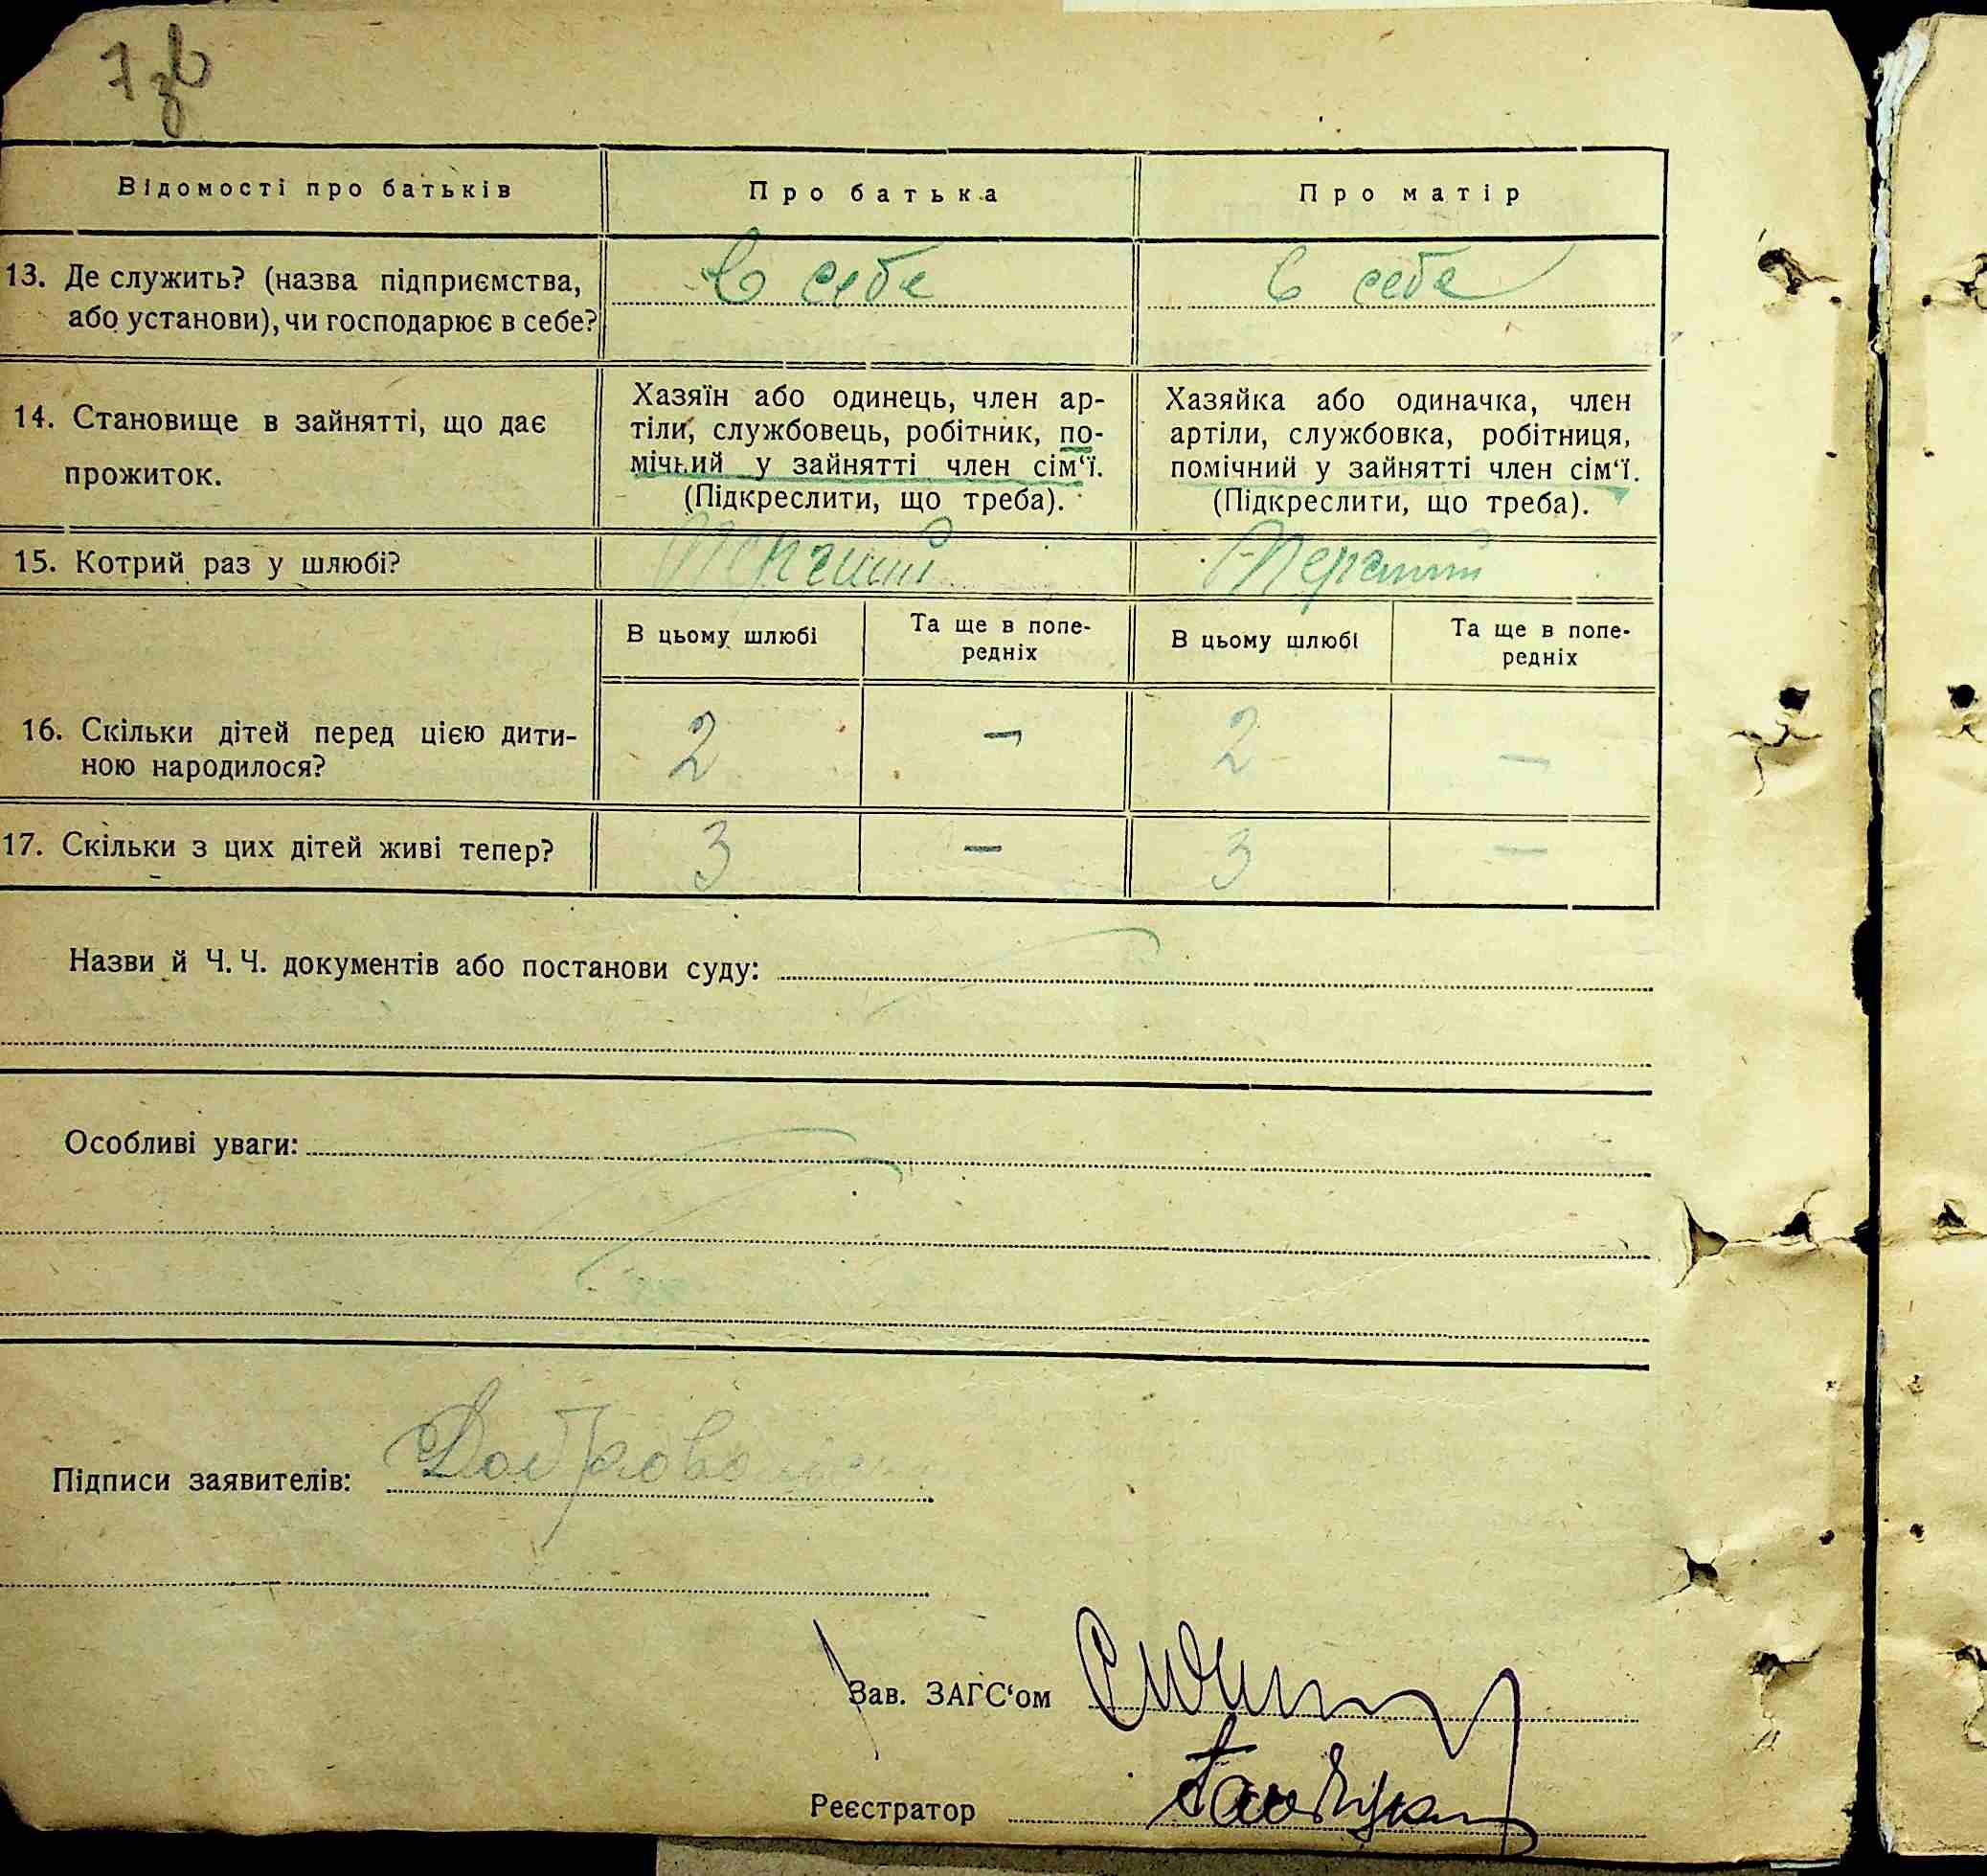 7 зв
Відомості про батьків Про батька Про матір
13. Де служить? (назва підприємства, в себе в себе
або установи), чи господарює в себе?
14. Становище в зайнятті, що дає
прожиток.
Хазяїн або одинець, член ар-
тіли, службовець, робітник, по-
мічний у зайнятті член сім‘ї.
(Підкреслити, що треба).
Хазяйка або одиначка, член
артіли, службовка, робітниця,
помічний у зайнятті член сім‘ї.
(Підкреслити, що треба).
15. Котрий раз у шлюбі? Перший Перший
В цьому шлюбі Та ще в попе-
редніх
В цьому шлюбі Та ще в попе-
редніх
16. Скільки дітей перед цією дити-
ною народилося?
2 — 2 —
17. Скільки з цих дітей живі тепер? 3 — 3 —
Назви й Ч. Ч. документів або постанови суду:
Особливі уваги:
Підписи заявителів:
Зав. ЗАГС‘ом
Реєстратор